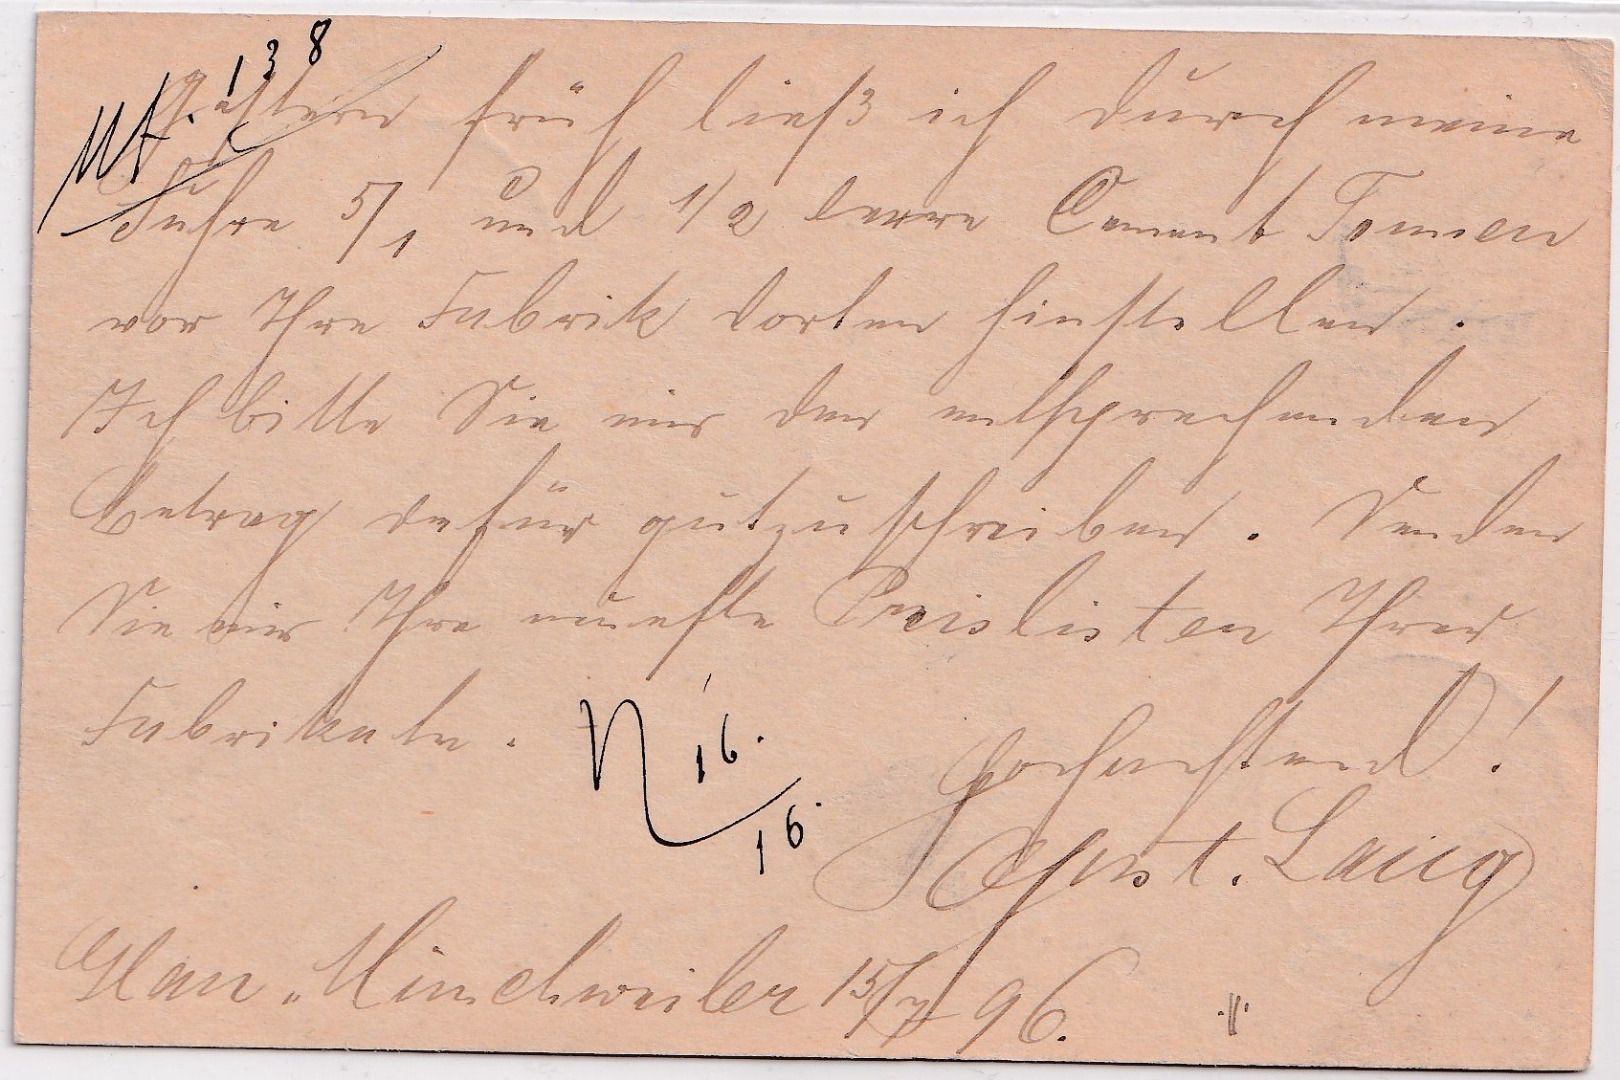 138
Gestern früh ließ ich durch meine
Fuhre 5/1 und 1/2 leere Cement Tonnen
vor Ihre Fabrik dorten hinstellen.
Ich bitte Sie mir den entsprechenden
Betrag dafür gutzuschreiben. Senden
Sie mir Ihre neueste Preislisten Ihrer
Fabrikate.
16.
16.
Hochachtend!
Lang
Glan-Münchweiler 15/7 96.